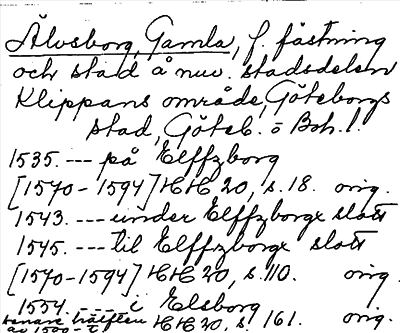 Älvsborg, Gamla, f. fästning
och stad å nuv. stadsdelen
Klippans område, Göteborgs
stad, Göteb. o Boh. l.
1535. --- på Elffzborg
[1570-1594] HH 20, s. 18. orig.
1543. --- under Elffzborgx slott
1545. --- til Elffzborgx slott
[1570-1594] HH 20, s. 110. orig.
1554. --- i Elsborg
senare hälften HH 20, s. 161. orig.
av 1500-t